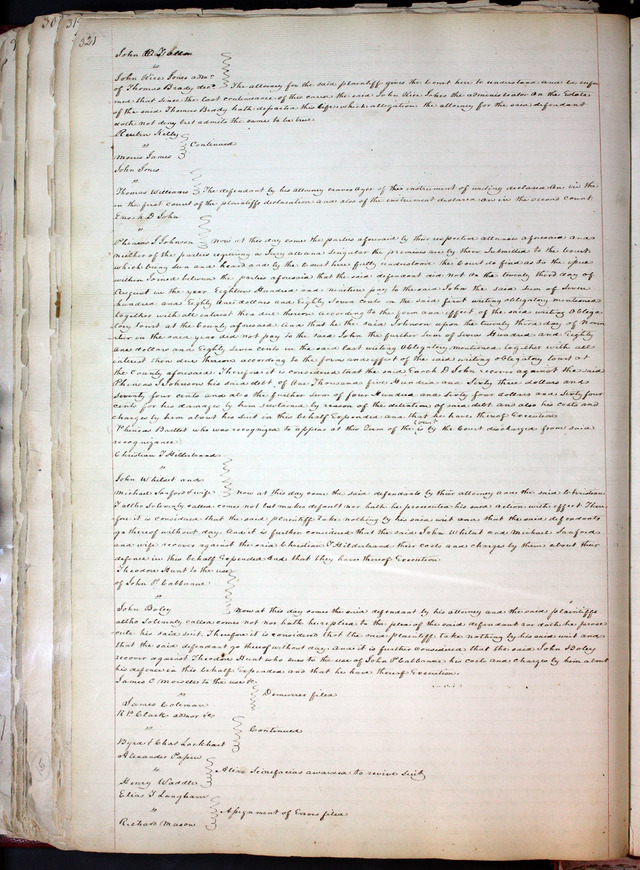 321
John
"
John Rice Jones admr
of Thomas Brady decd. The attorney for the said plaintiff gives the Court here to understand and be infor
med that since the last continuance of this cause the said John Rice Jones the administrator on the Estate
of the said Thomas Brady hath departed this life which allegation the attorney for the said defendant
doth not deny but admits the same to be true
Reubin Kelly
" Continued
Morris James
John Jones
"
Thomas Williams The defendant by his attorney craves Oyer of the instrument of writing declared on
in the first count of the plaintiffs declaration and also of the instrument declared on in the second Count
Enoch D John
"
Phineas J Johnson Now at this day come the parties aforesaid by their respective attornies aforesaid and
neither of the parties requiring a Jury all and singular the premises are by them submitted to the Court
which being seen and heard and by the Court here fully understood the Court do find as to the issue
within Joined between the parties aforesaid that the said defendant did not on the twenty third day of
August in the year Eighteen Hundred and nineteen pay to the said John the said sum of Seven
hundred and Eighty One dollars and Eighty Seven Cents in the said first writing obligatory mentioned
together with all interest thea due thereon according to the form and effect of the said writing Obliga
tory Court at the County aforesaid And that he the said Johnson upon the twenty third day of Novem
ber in the said year did not pay to the said John the further sum of Seven Hundred and Eighty
One dollars and Eighty Seven Cents in the said last writing Obligatory mentioned together with all
interest thea due thereon according to the form and effect of the said writing obligatory Court at
the County aforesaid Therefore it is considered that the said Enoch D John recover against the said
Phineas J Johnson his said debt of One Thousand five Hundred and Sixty three dollars and
Seventy four cents and also the further sum of four Hundred and Sixty four dollars and Sixty four
Cents for his damages by him sustained by reason of the detention of said debt and also his costs and
charges by him about his suit in this behalf Expended and that he have thereof Execution
Phineas Bartlet who was recognized to appear at this Term of the Court is by the Court discharged from said
recognizance
Christian T Hilderbrand
"
John Whitset and
Michael Sanford & wife Now at this day come the said defendants by their attorney and the said Christian
T altho Solemnly called comes not but makes default nor hath he prosecuted his said Action with effect There
fore it is considered that the said plaintiff take nothing by his said writ and that the said defendants
go thereof without day. And it is further considered that the said John Whitset and Michael Sanford
and wife recover against the said Christian T Hilderbrand their costs and charges by them about their
defence in this behalf Expended And that they have thereof Execution
Theodore Hunt to the use
of John P Cabbanne
"
John Boley Now at this day comes the said defendant by his attorney and the said plaintiffs
altho Solemnly called comes not nor hath he replied to the plea of the said defendant nor doth he prose
cute his said suit. Therefore it is considered that the said plaintiff take nothing by his said suit and
that the said defendant go thereof without day. And it is further considered that the said John Boley
recover against Theodore Hunt who sues to the use of John P Cabbanne his costs and charges by him about
his defence in this behalf Expended and that he have thereof Execution.
James C Morelle to the use &c
" Demurrer filed
James Coleman
R P Clark admor &c
" Continued
Byrd & Chas Lockhart
Alexander Papin
" Alias Scirefacias awarded to revive Suit
Henry Waddle
Elias T Langham
" Assignment of Errors filed
Richard Mason